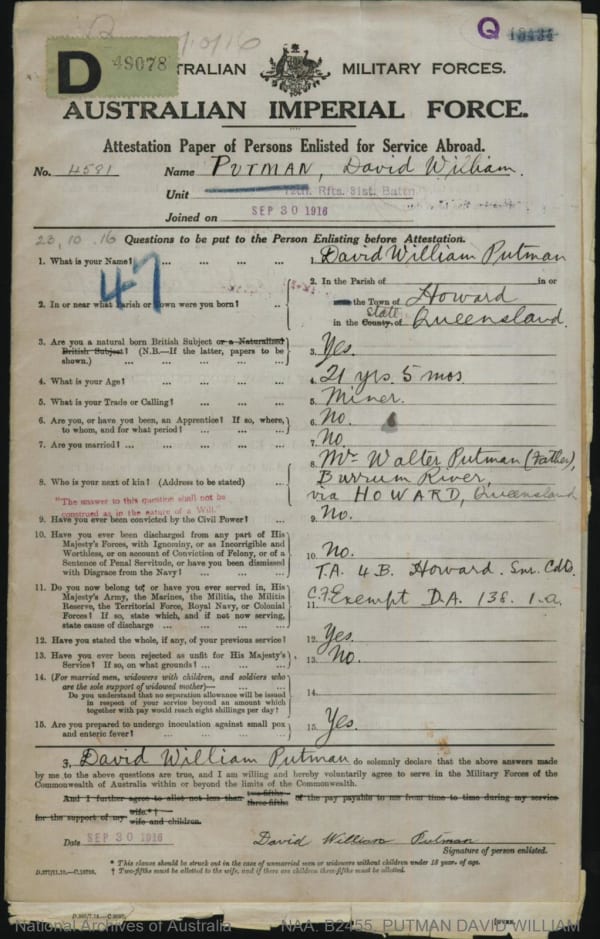 10/16
Q 18434
D 48078 TRALIAN MILITARY FORCES.
AUSTRALIAN IMPERIAL FORCE.
Attestation Paper of Persons Enlisted for Service Abroad.
No. 4591 Name PUTMAN, David William.
Unit 12th. Rfts. 31st. Battn.
Joined on SEP 30 1916
23.10.16 Questions to be put to the Person Enlisting before Attestation.
47
1. What is your Name? ... ... ... ... 1. David William Putman
2. In or near what Parish or Town were you born? .. 2. In the Parish of in or
the Town of Howard
in the County of State Queensland.
3. Are you a natural born British Subject or a Naturalized
British Subject? (N.B.—If the latter, papers to be
shown.) ... ... ... ... ... 3. Yes.
4. What is your Age? ... ... ... ... 4. 21 yrs. 5 mos
5. What is your Trade or Calling? ... ... ... 5. Miner.
6. Are you, or have you been, an Apprentice? If so, where,
to whom, and for what period? ... ... ... 6. No.
7. Are you married? ... ... ... ... 7. No.
8. Who is your next of kin? (Address to be stated) ... 8. Mr Walter Putman (Father),
Burrum River,
via HOWARD, Queensland
"The answer to this question shall not be
construed as in the nature of a Will."
9. Have you ever been convicted by the Civil Power? ... 9. No.
10. Have you ever been discharged from any part of His
Majesty's Forces, with Ignominy, or as Incorrigible and
Worthless, or on account of Conviction of Felony, or of a
Sentence of Penal Servitude, or have you been dismissed
with Disgrace from the Navy? ... ... ... 10. No.
11. Do you now belong to, or have you ever served in, His
Majesty's Army, the Marines, the Militia, the Militia
Reserve, the Territorial Force, Royal Navy, or Colonial
Forces? If so, state which, and if not now serving,
state cause of discharge ... ... ... ... 11. T.A. 4 B. Howard. Snr. Cdts.
C.F. Exempt D.A. 138. 1.a.
12. Have you stated the whole, if any, of your previous service? 12. Yes.
13. Have you ever been rejected as unfit for His Majesty's
Service? If so, on what grounds? ... ... ... 13. No.
14. (For married men, widowers with children, and soldiers who
are the sole support of widowed mother)—
Do you understand that no separation allowance will be issued
in respect of your service beyond an amount which
together with pay would reach eight shillings per day? 14.
15. Are you prepared to undergo inoculation against small pox
and enteric fever? ... ... ... ... 15. Yes.
I, David William Putman do solemnly declare that the above answers made
by me to the above questions are true, and I am willing and hereby voluntarily agree to serve in the Military Forces of the
Commonwealth of Australia within or beyond the limits of the Commonwealth.
And I further agree to allot not less than two-fifths three-fifths of the pay payable to me from time to time during my service
for the support of my wife.*† wife and children.
Date SEP 30 1916 David William Putman
Signature of person enlisted.
* This clause should be struck out in the case of unmarried men or widowers without children under 18 year. of age.
† Two-fifths must be allotted to the wife, and if there are children three-fifths must be allotted.
National Archives of Australia NAA: B2455, PUTMAN DAVID WILLIAM